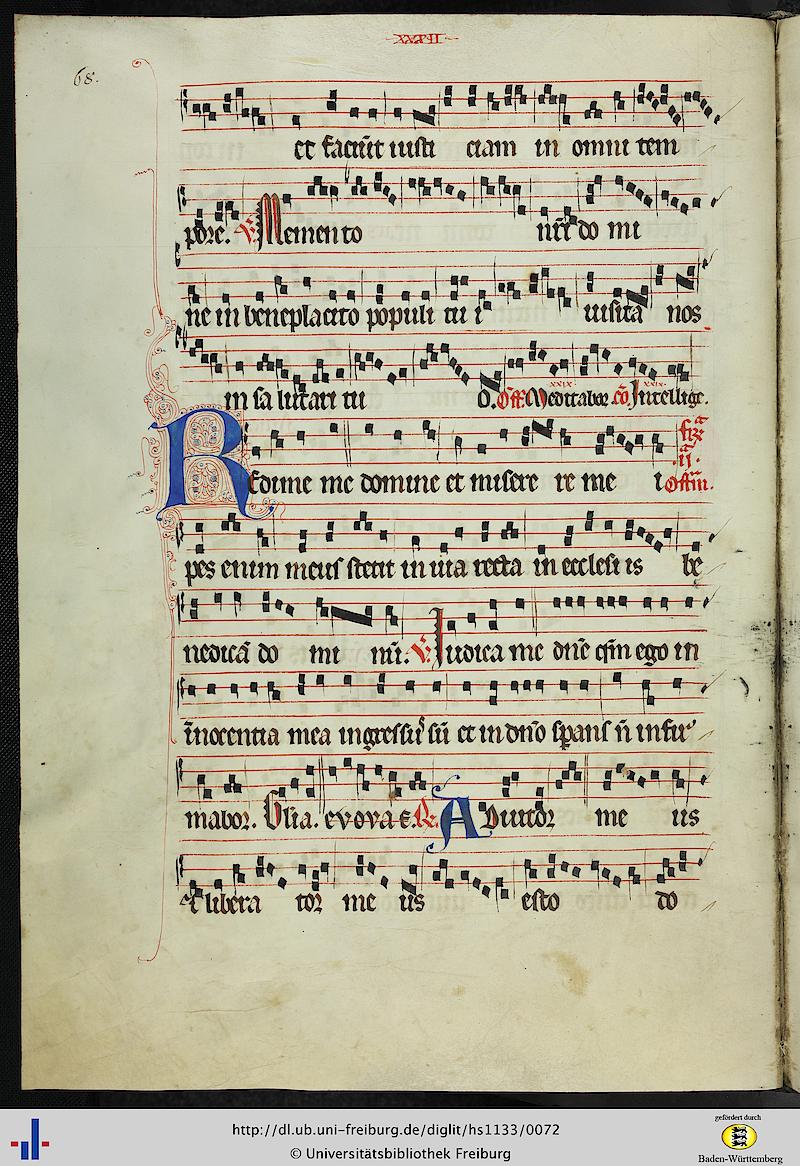 XXVII
68.
et faciūt iusti ciam in omni tem
pore. V. Memento nrī do mi
ne in beneplacito populi tu i uisita nos
in sa lutari tu o. Off. Meditabor. cō. Intellige.
xxix xxix
Redime me domine et misere re me i
fr̄ ij. Offm̄.
pes enim meus stetit in uia recta in ecclesi is be
nedicā do mi nū. V. Iudica me dn̄e qm̄ ego in
īnocentia mea ingressus sū et in dn̄o sꝑans n̄ infir
mabor. Glia. evovae. R. Adiutor me us
et libera tor me us esto do
http://dl.ub.uni-freiburg.de/diglit/hs1133/0072
© Universitätsbibliothek Freiburg
gefördert durch
Baden-Württemberg